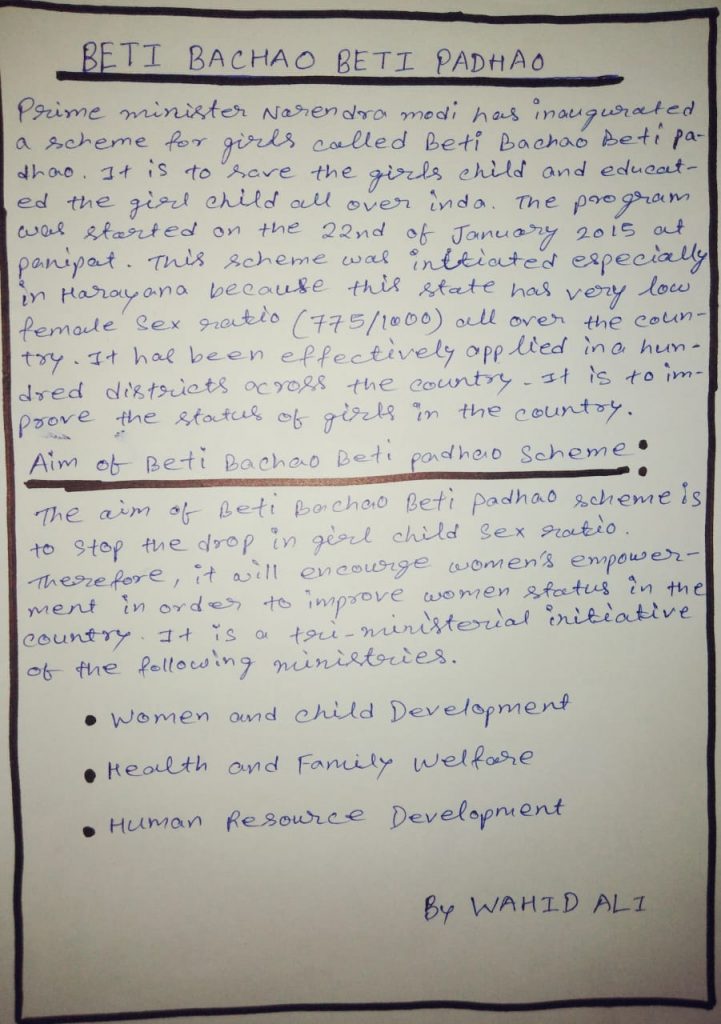 BETI BACHAO BETI PADHAO
Prime minister Narendra modi has inaugurated
a scheme for girls called Beti Bachao Beti pa-
dhao. It is to save the girls child and educat-
ed the girl child all over inda. The program
was started on the 22nd of January 2015 at
panipat. This scheme was inttiated especially
in Harayana because this state has very low
female Sex ratio (775/1000) all over the coun-
try. It has been effectively applied in a hun-
dred districts across the country. It is to im-
prove the status of girls in the country.
Aim of Beti Bachao Beti padhao Scheme:
The aim of Beti Bachao Beti padhao scheme is
to stop the drop in girl child sex ratio.
Therefore, it will encourge women's empower-
ment in order to improve women status in the
country. It is a tri-ministerial initiative
of the following ministries.
• Women and child Development
• Health and Family Welfare
• Human Resource Development
By WAHID ALI